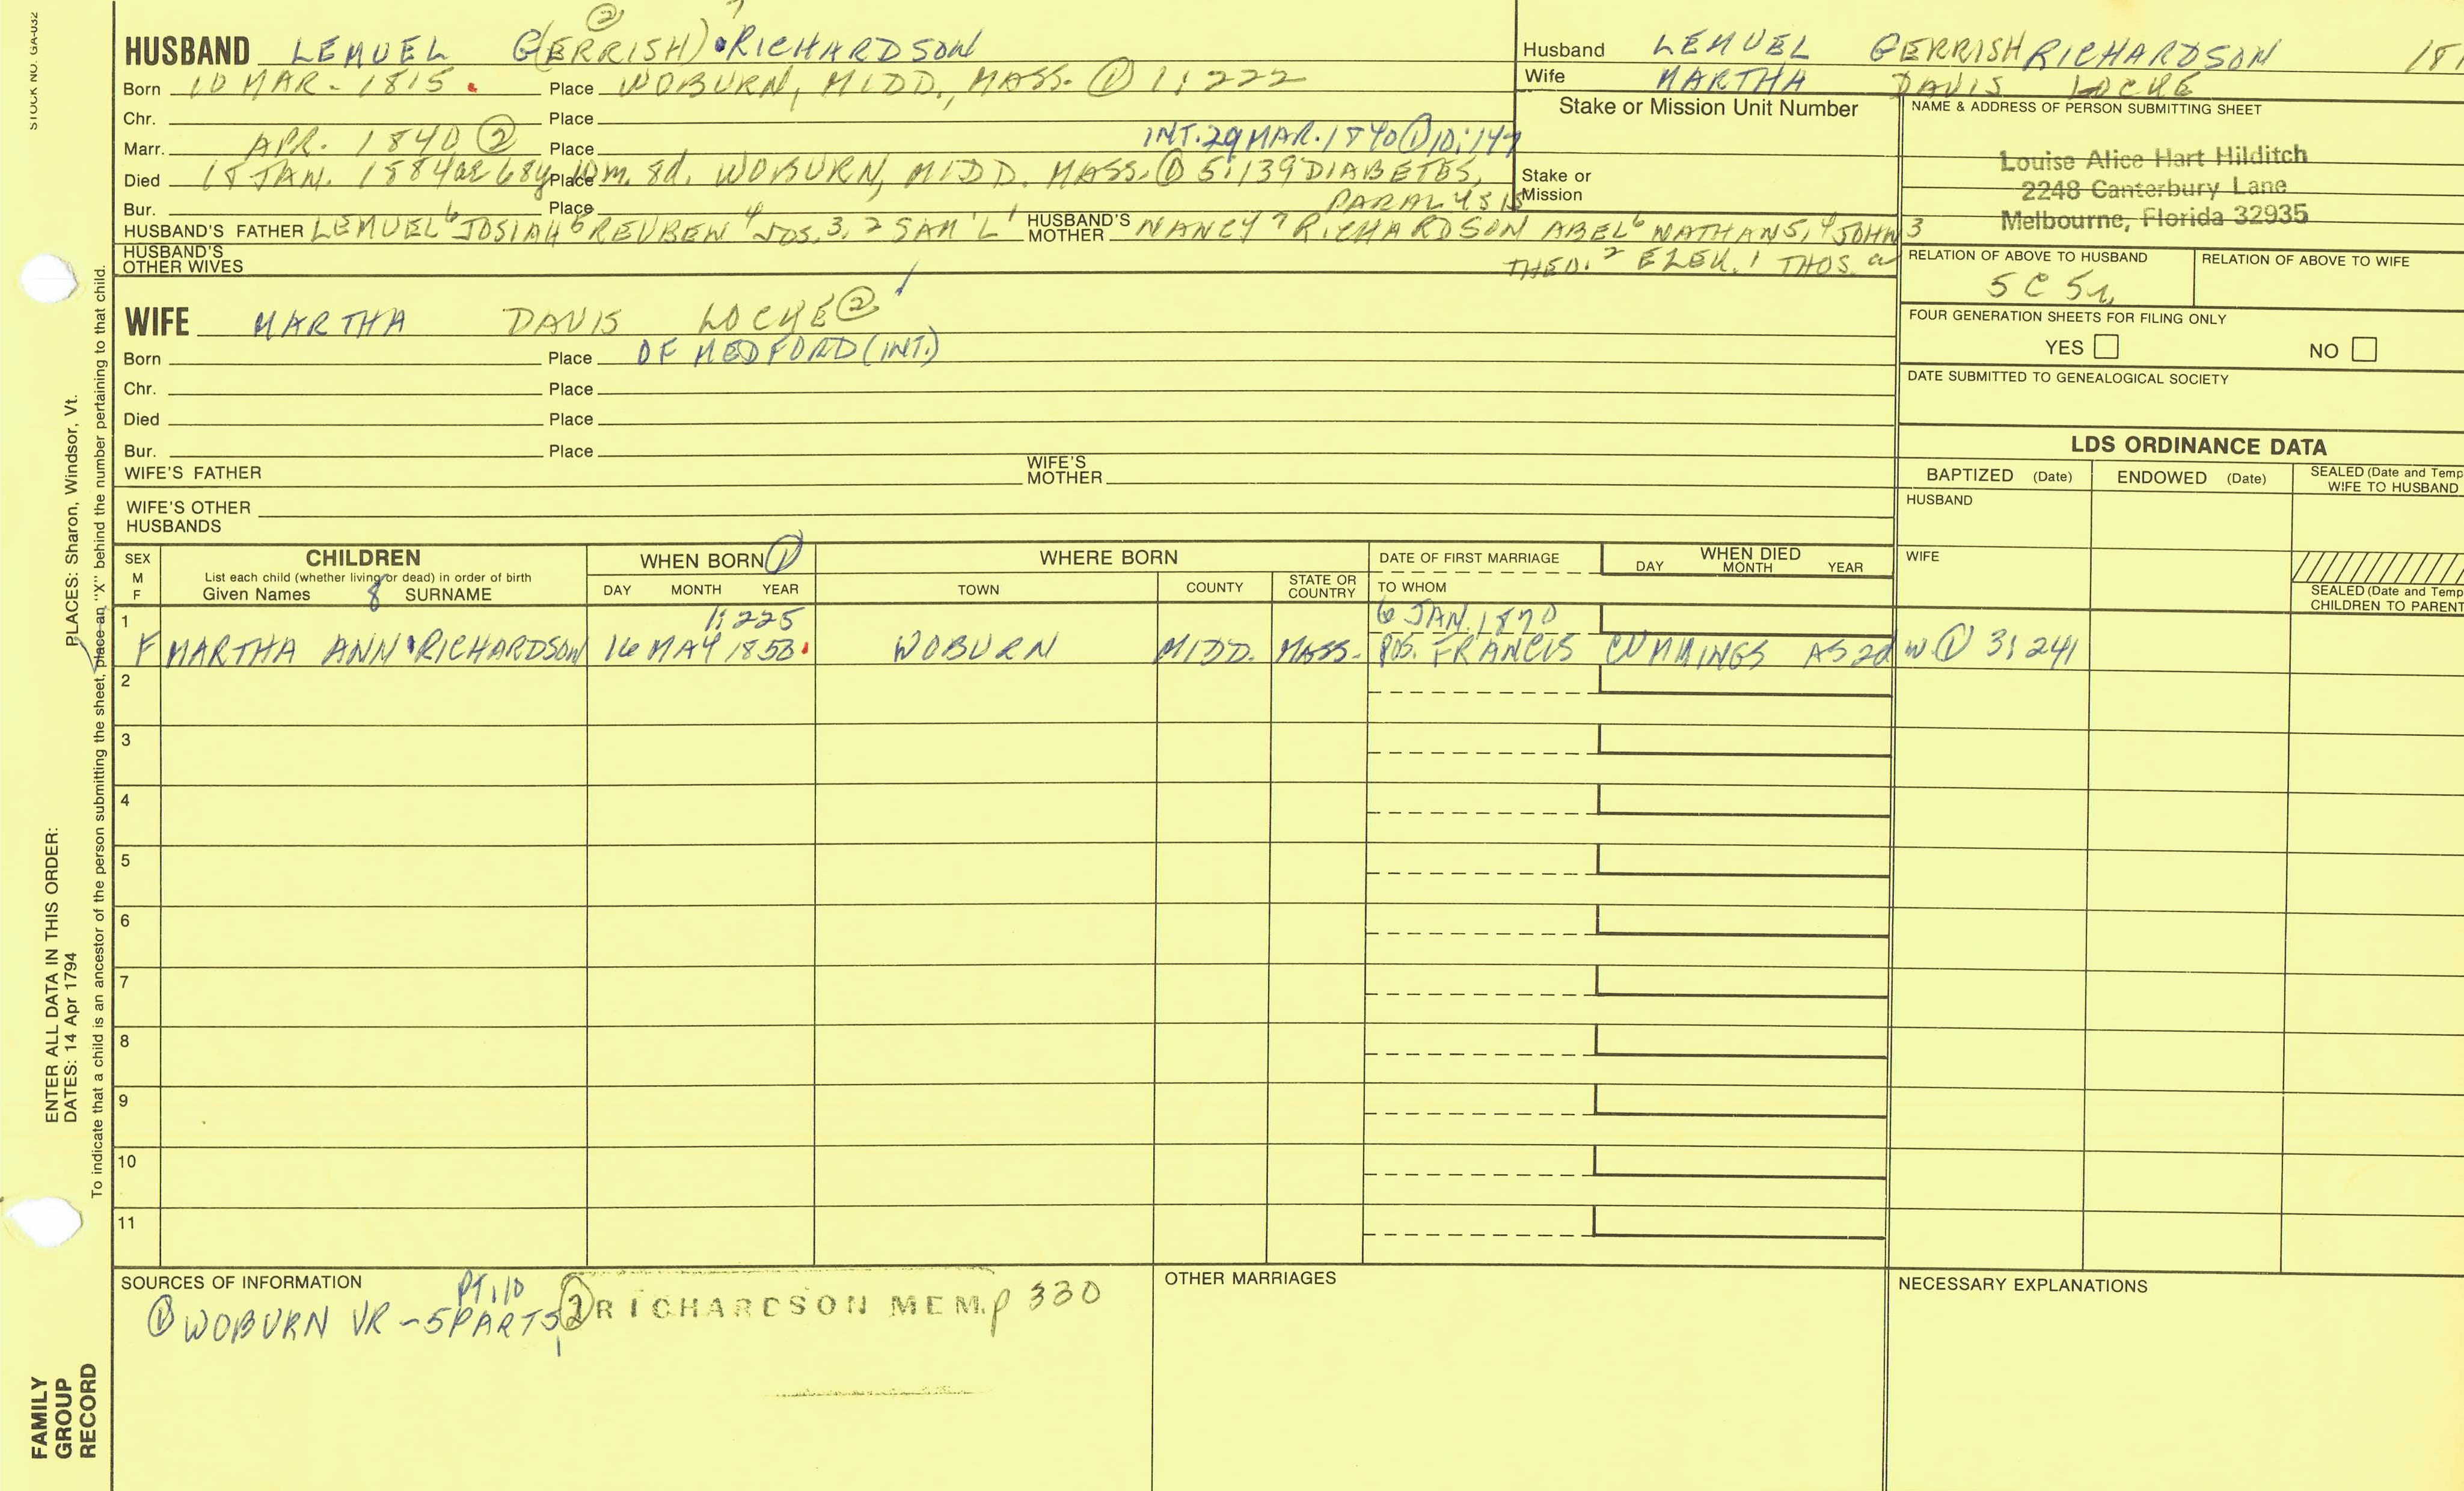 STOCK NO. GA-032
②
HUSBAND LEMUEL G(ERRISH) RICHARDSON
Born 10 MAR. 1815. Place WOBURN, MIDD., MASS. ① 1:222
Chr. Place
INT. 29 MAR. 1840 ① 10:147
Marr. APR. 1840 ② Place
Died 18 JAN. 1884 ae 68y Place 10m. 8d. WOBURN, MIDD. MASS. ① 5:139 DIABETES,
Bur. Place PARALYSIS
HUSBAND'S FATHER LEMUEL 6 JOSIAH 5 REUBEN 4 JOS. 3, 2 SAM'L 1 HUSBAND'S MOTHER NANCY 7 RICHARDSON ABEL 6 NATHAN 5, 4 JOHN 3
HUSBAND'S OTHER WIVES THEO. 2 EZEK. 1 THOS. a
WIFE MARTHA DAVIS LOCKE ②
Born Place OF MEDFORD (INT.)
Chr. Place
Died Place
Bur. Place
WIFE'S FATHER WIFE'S MOTHER
WIFE'S OTHER HUSBANDS
Husband LEMUEL GERRISH RICHARDSON
Wife MARTHA DAVIS LOCKE
Stake or Mission Unit Number
Stake or Mission
NAME & ADDRESS OF PERSON SUBMITTING SHEET
Louise Alice Hart Hilditch
2248 Canterbury Lane
Melbourne, Florida 32935
RELATION OF ABOVE TO HUSBAND RELATION OF ABOVE TO WIFE
5 C 5r
FOUR GENERATION SHEETS FOR FILING ONLY
YES NO
DATE SUBMITTED TO GENEALOGICAL SOCIETY
LDS ORDINANCE DATA
BAPTIZED (Date) ENDOWED (Date) SEALED (Date and Temp
WIFE TO HUSBAND
HUSBAND
WIFE
SEALED (Date and Temp
CHILDREN TO PARENT
SEX M F
CHILDREN
List each child (whether living or dead) in order of birth
Given Names 8 SURNAME
WHEN BORN ①
DAY MONTH YEAR
WHERE BORN
TOWN COUNTY STATE OR COUNTRY
DATE OF FIRST MARRIAGE
TO WHOM
WHEN DIED
DAY MONTH YEAR
1 1:225 6 JAN. 1870
F MARTHA ANN RICHARDSON 16 MAY 1853 WOBURN MIDD. MASS. POS. FRANCIS CUMMINGS AS 2d w. ① 3:241
2
3
4
5
6
7
8
9
10
11
SOURCES OF INFORMATION PT. 10
① WOBURN VR - 5 PARTS ② RICHARDSON MEM. p 330
OTHER MARRIAGES
NECESSARY EXPLANATIONS
PLACES: Sharon, Windsor, Vt.
To indicate that a child is an ancestor of the person submitting the sheet, place an "X" behind the number pertaining to that child.
ENTER ALL DATA IN THIS ORDER:
DATES: 14 Apr 1794
FAMILY
GROUP
RECORD